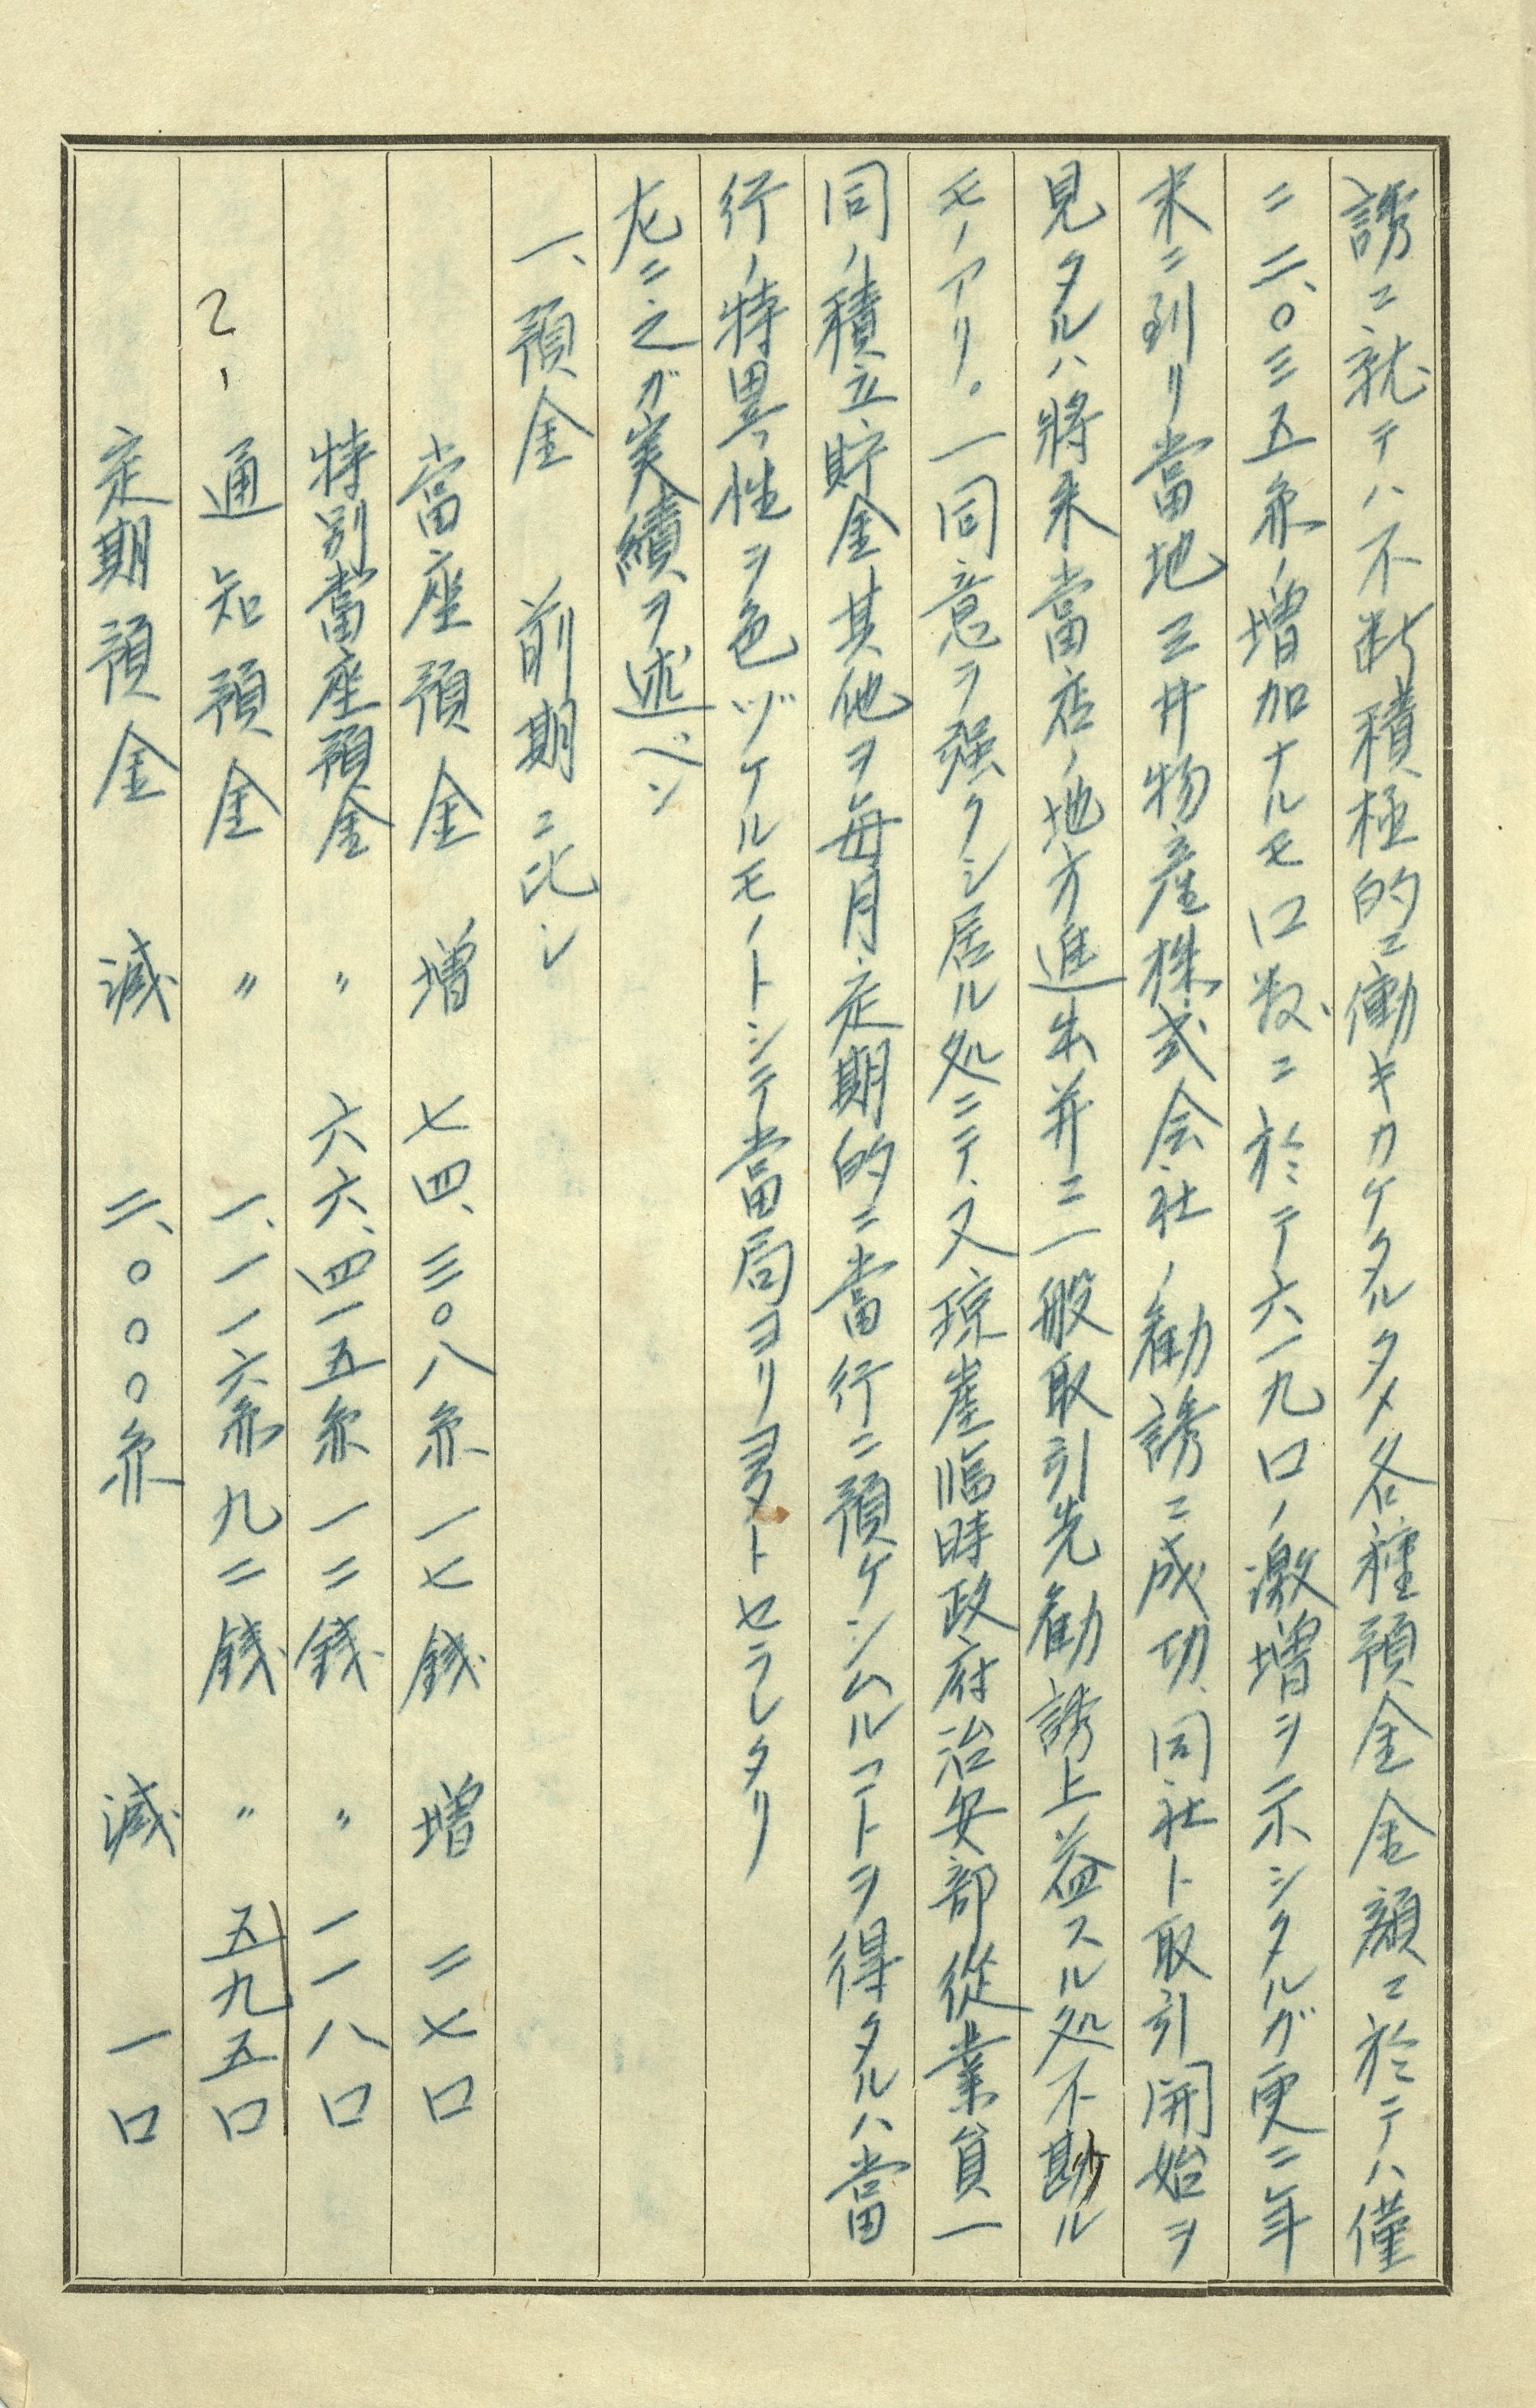 誘ニ就テハ不断積極的ニ働キカケタルタメ各種預金金額ニ於テハ僅
ニ二、〇三五糸ノ増加ナルモ口数ニ於テ六一九口ノ激増ヲ示シタルガ更ニ年
末ニ到リ當地三井物産株式会社ノ勧誘ニ成功、同社ト取引開始ヲ
見タルハ將来當店ノ地方進出并ニ一般取引先勧誘上益スル処不尠ル
モノアリ。一同意ヲ強クシ居ル処ニテ、又瓊崖臨時政府治安部從業員一
同ノ積立貯金其他ヲ毎月定期的ニ當行ニ預ケシムルコトヲ得タルハ當
行ノ特異性ヲ色ヅケルモノトシテ當局ヨリヨタトセラレタリ
左ニ之ガ実績ヲ述ベン
一、預金 前期ニ比シ
當座預金 増 七四、三〇八糸一七錢 増 二七口
特別當座預金 〃 六六、四一五糸一二錢 〃 一一八口
通知預金 〃 一、一一六糸九二錢 〃 五九五口
定期預金 減 二、〇〇〇糸 減 一口